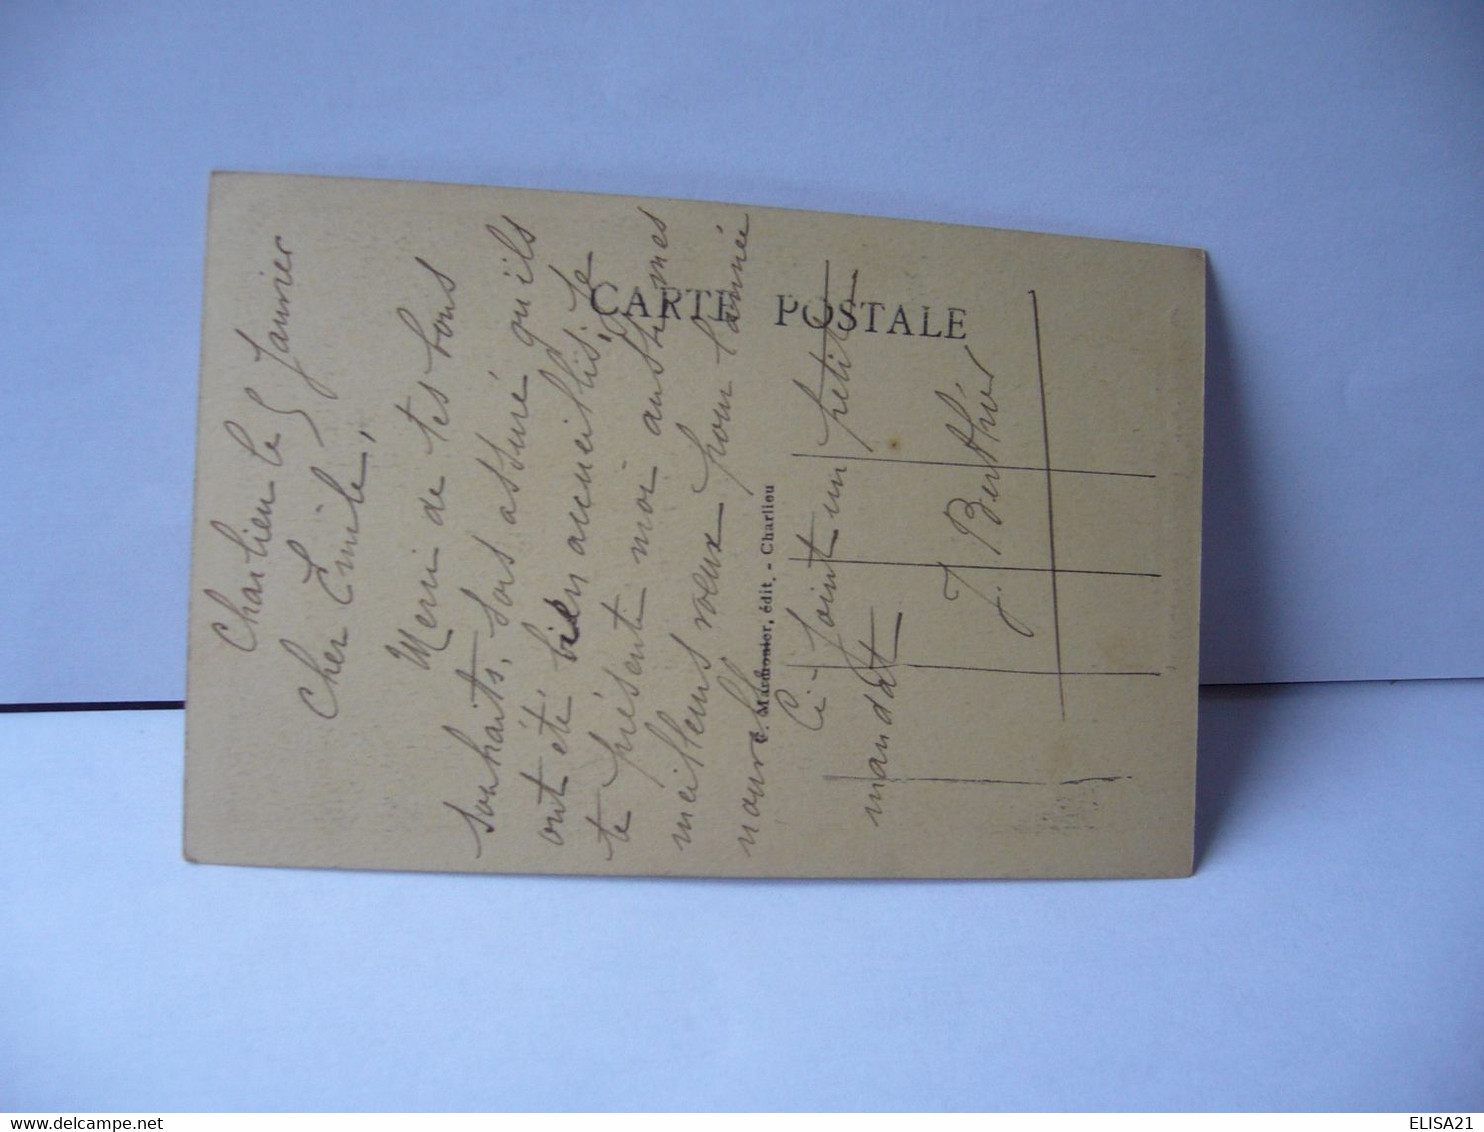 Charlieu le 5 Janvier
Cher Emile,
Merci de tes bons
souhaits. Sois assuré qu'ils
ont été bien accueillis, je
te présente moi aussi mes
meilleurs vœux pour l'année
nouvelle
Ci-joint un petit
mandat
J. Berthier
CARTE POSTALE
C. Marmonier, édit. - Charlieu
delcampe.net
ELISA21